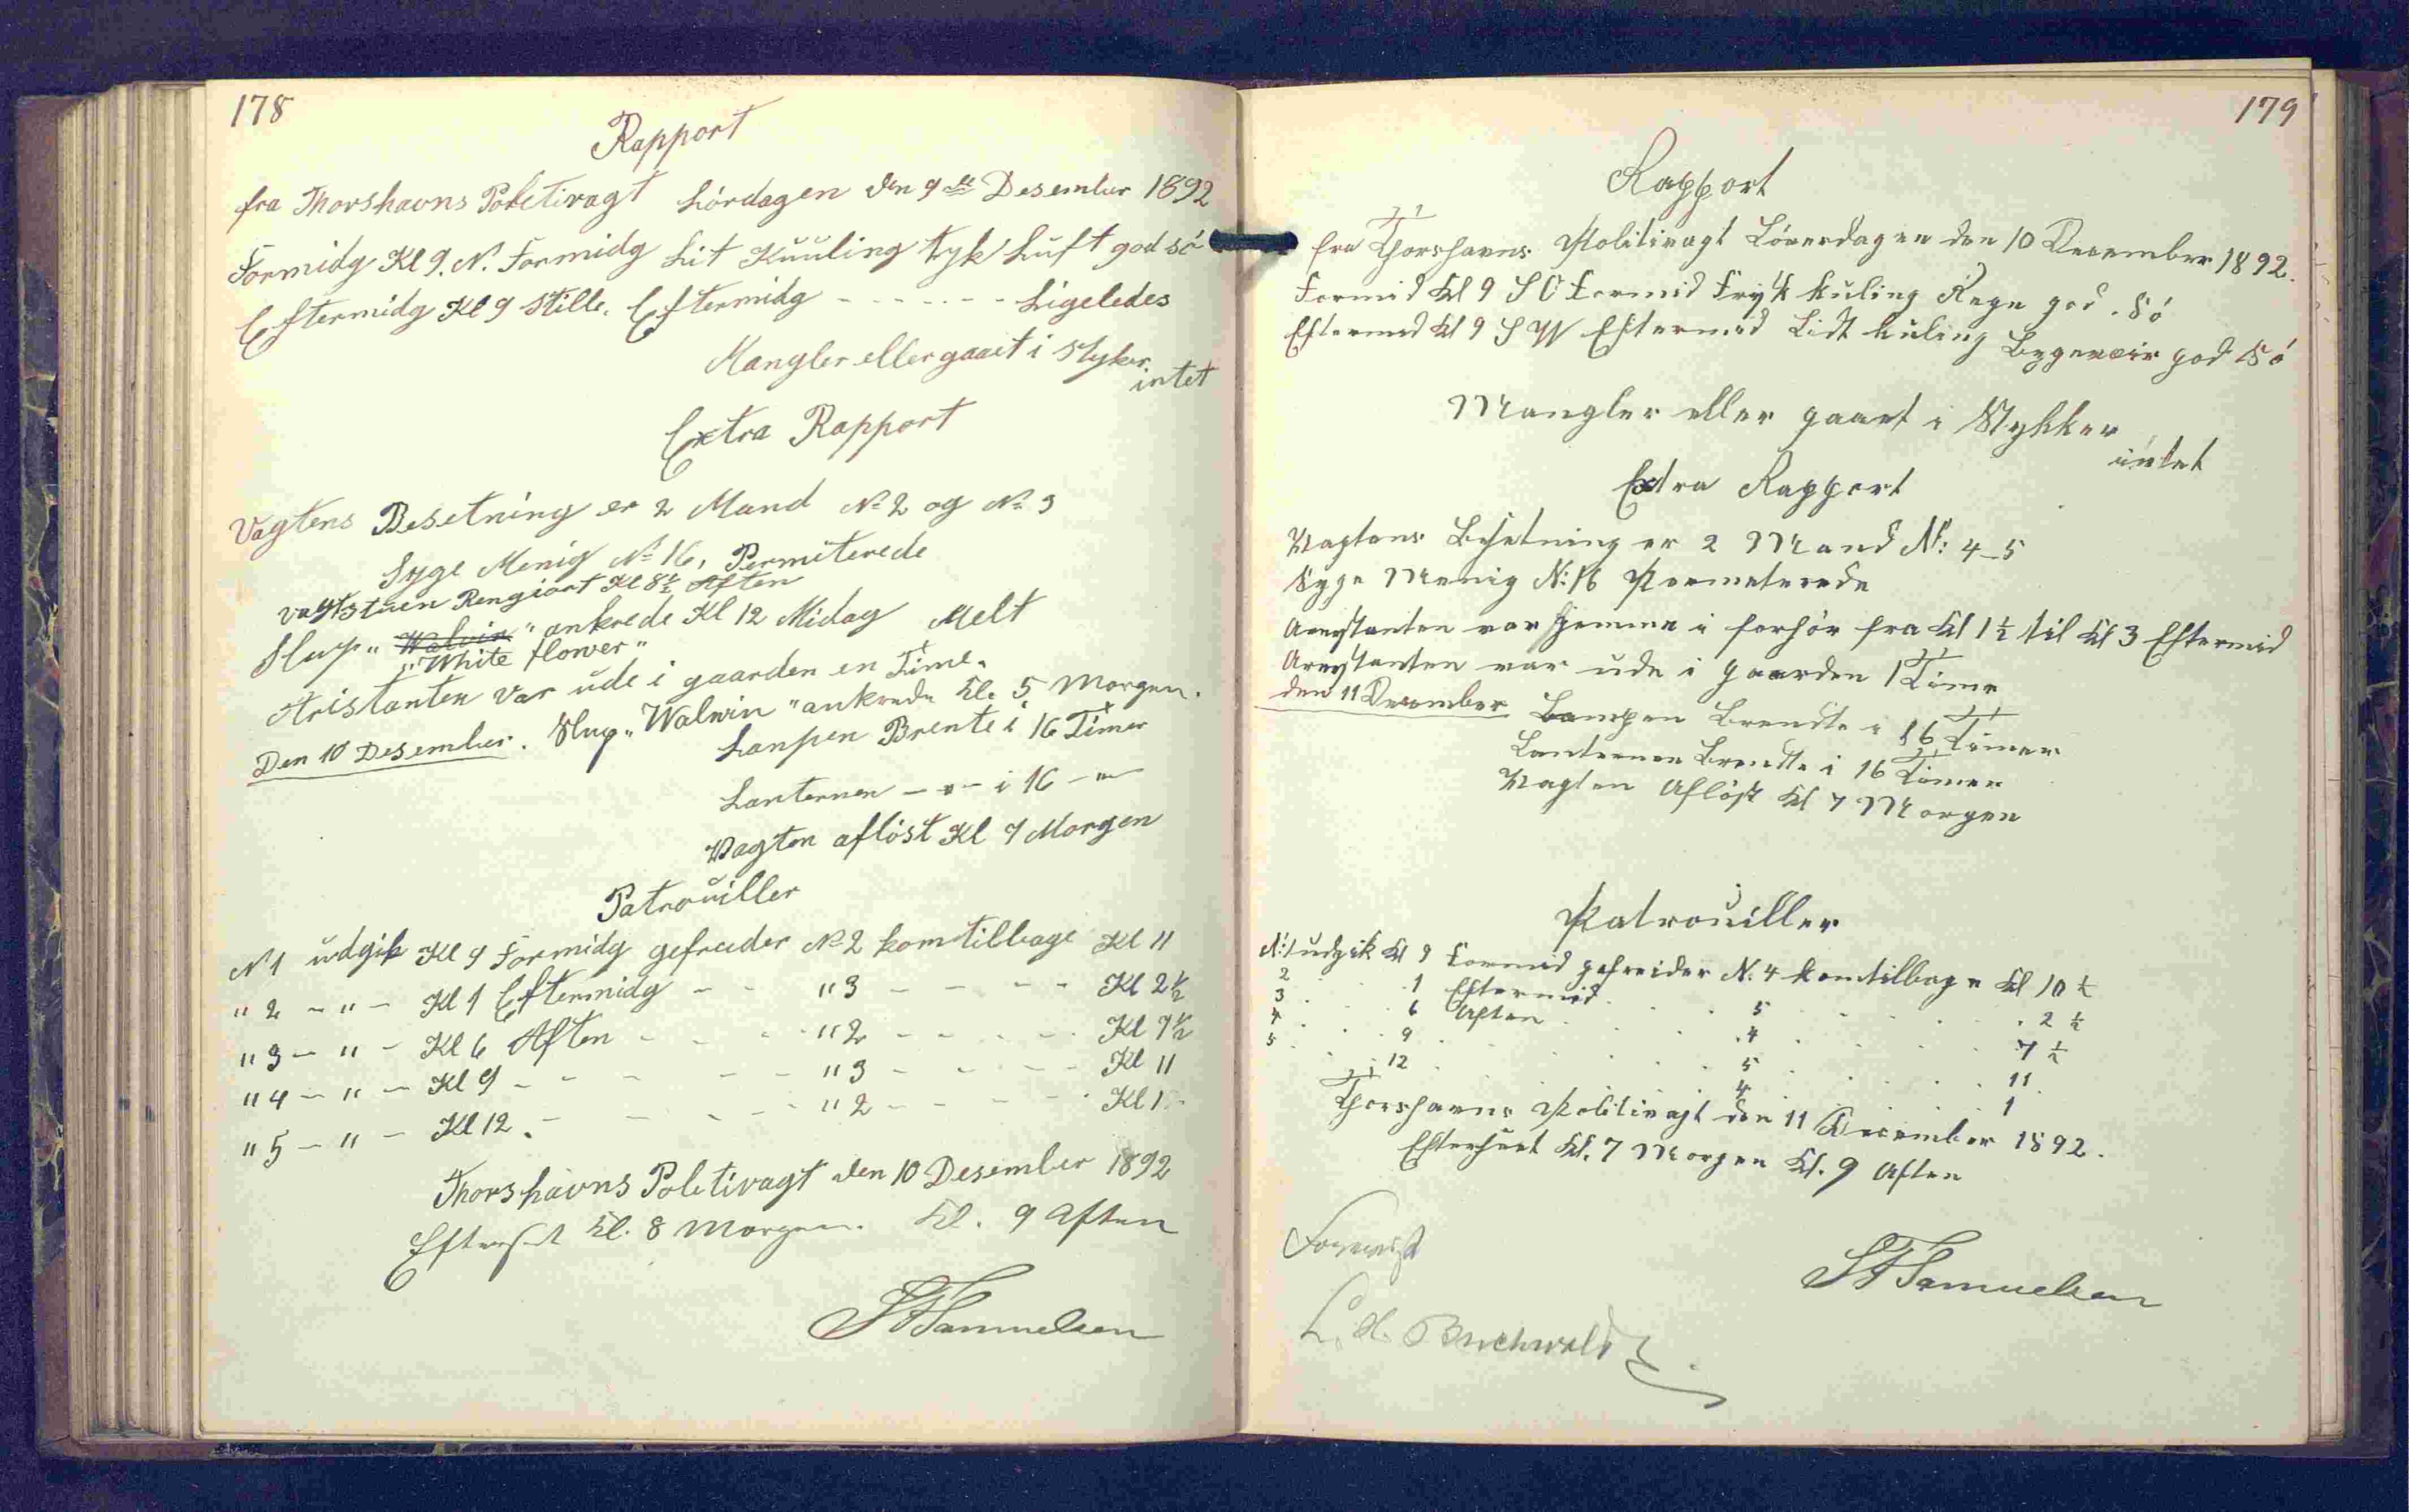 178
Rapport
fra Thorshavns Poletivagt Lördagen den 9de Desember 1892
Formidg Kl 9. N. Formidg Lit Kuuling tyk Luft god sö
Eftermidg Kl 9 Stille. Eftermidg - - - - - - - Ligeledes
Mangler eller gaaet i Styker
intet
Extra Rapport
Vagtens Besetning er 2 Mand No 2 og No 3
Syge Menig No 16, Permiterede
Vagtstuen Rengiort Kl 8½ Aften
Slup „ Walvin " ankrede Kl 12 Midag Melt
„White flower"
Aristanten var ude i gaarden en Time.
Den 10 Desember. Slup „Walwin " ankrede Kl. 5 Morgen.
Lanpen Brente i 16 Timer
Lanternen - " - i 16 - " -
Vagten aflöst Kl 7 Morgen
Patrouiller
No 1 udgik Kl 9 Formidg gefreider No 2 kom tilbage Kl 11
" 2 - " - Kl 1 Eftermidg - - " 3 - - - - Kl 2½
" 3 - " - Kl 6 Aften - - - " 2 - - - - Kl 7½
" 4 - " - Kl 9 - - - - - " 3 - - - - Kl 11
" 5 - " - Kl 12. - - - - - " 2 - - - - Kl 1
Thorshavns Poletivagt den 10 Desember 1892
Efterset Kl. 8 Morgen. Kl. 9 Aften
Samuelsen
179
Rapport
fra Thorshavns Politivagt Löverdagen den 10 December 1892.
Formid Kl 9 S O Formid Frysk kuling Regn god . Sö
Eftermed Kl 9 S W Eftermed Lidt kuling Bygeveir god Sö
Mangler eller gaaet i Stykker
intet
Extra Rapport
Vagtens Besetning er 2 Mand N: 4-5
Syge Menig N: 16 Permeterede
Arrestanten var hjemme i forhör fra Kl 1½ til Kl 3 Eftermid
Arrestanten var ude i Gaarden 1 Time
den 11 December Lampen Brendte i 16 Timer
Lanternen Brendte i 16 Timer
Vagten Aflöst Kl 7 Morgen
Patrouiller
N: 1 udgik Kl 9 Formed gefreider N. 4 kom tilbage Kl 10½
2 . . 1 Eftermid . . . 5 . . . . 2½
3 . . 6 Aften . . . 4 . . . . 7½
4 . . 9 . . . . 5 . . . . 11
5 . . 12 . . . . 4 . . . . 1
Thorshavns Politivagt den 11 December 1892.
Efterseet Kl. 7 Morgen Kl. 9 Aften
Forevist
Samuelsen
Buchwald